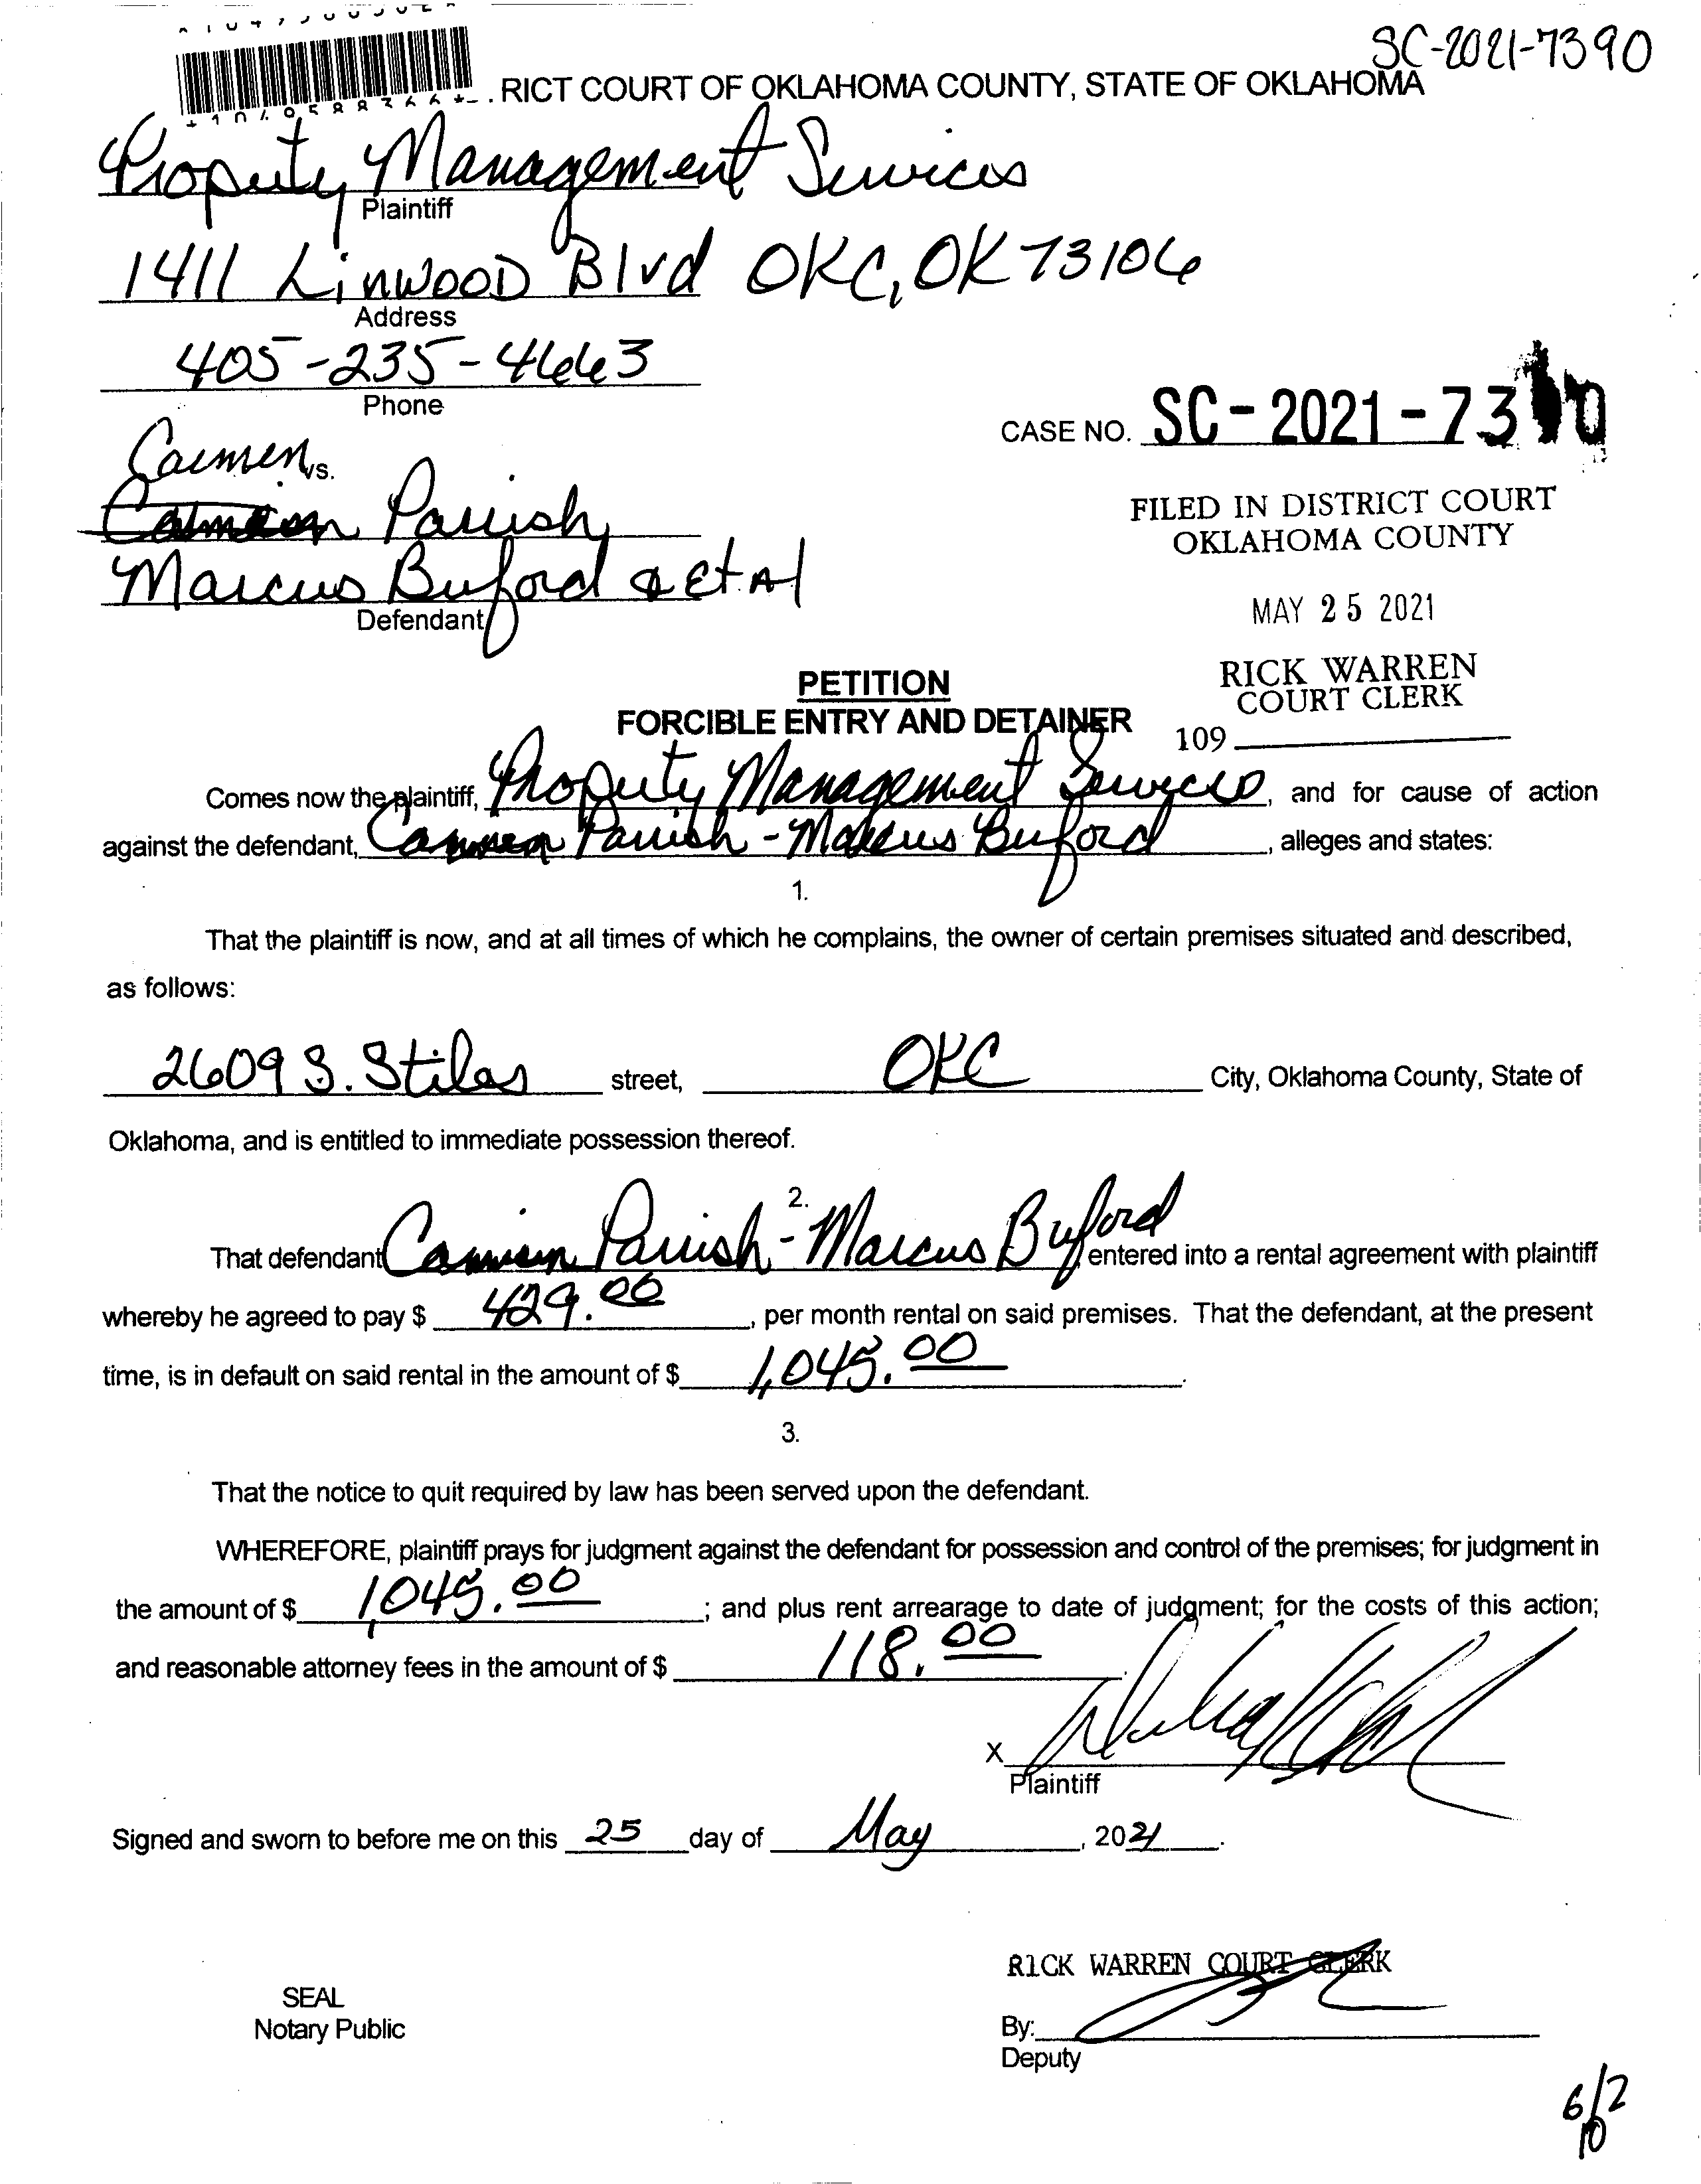 SC-2021-7390
RICT COURT OF OKLAHOMA COUNTY, STATE OF OKLAHOMA
Property Management Services
Plaintiff
1411 Linwood Blvd OKC, OK 73106
Address
405-235-4663
Phone
CASE NO. SC-2021-73 0
Carmen vs.
Parrish
FILED IN DISTRICT COURT
OKLAHOMA COUNTY
Marcus Buford & Et Al
Defendant
MAY 25 2021
PETITION
RICK WARREN
COURT CLERK
FORCIBLE ENTRY AND DETAINER
109
Comes now the plaintiff, Property Management Services, and for cause of action
against the defendant, Carmen Parrish - Marcus Buford, alleges and states:
1.
That the plaintiff is now, and at all times of which he complains, the owner of certain premises situated and described,
as follows:
2609 S. Stiles street, OKC City, Oklahoma County, State of
Oklahoma, and is entitled to immediate possession thereof.
2.
That defendant Carmen Parrish - Marcus Buford entered into a rental agreement with plaintiff
whereby he agreed to pay $ 429.00, per month rental on said premises. That the defendant, at the present
time, is in default on said rental in the amount of $ 1,045.00.
3.
That the notice to quit required by law has been served upon the defendant.
WHEREFORE, plaintiff prays for judgment against the defendant for possession and control of the premises; for judgment in
the amount of $ 1,045.00; and plus rent arrearage to date of judgment; for the costs of this action;
and reasonable attorney fees in the amount of $ 118.00
X
Plaintiff
Signed and sworn to before me on this 25 day of May, 2021.
RICK WARREN COURT CLERK
SEAL
Notary Public
By:
Deputy
6/2
10